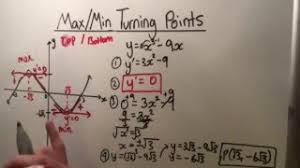 Max/Min Turning Points
Top / Bottom
max
y'=0
-√3
√3
y'=0
min
y=x³-9x
① y'=3x²-9
② y'=0
③ 0=3x²-9
+9 +9
9/3=3x²/3
√3=√x²
x=±√3
④ y=√3³-9√3
y=3√3-9√3
y=-6√3
P(√3,-6√3)